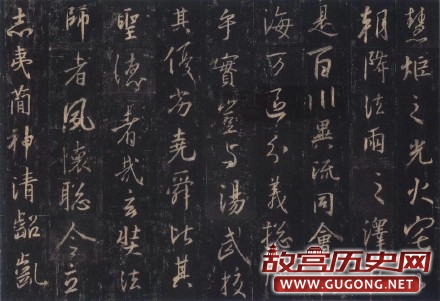 慧炬之光火宅
朝降法雨之澤
是百川異流同會
海万區分義總
乎實豈与湯武校
其優劣堯舜比其
聖德者哉玄奘法
師者夙懷聰令立
志夷簡神清齠齔
故宫历史网
WWW.GUGONG.NET